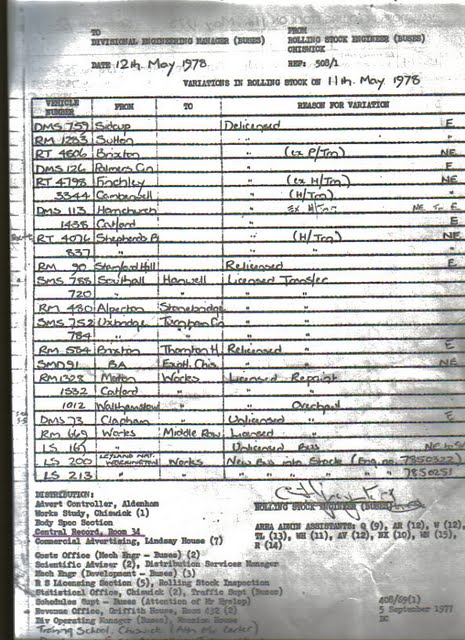 TO FROM
DIVISIONAL ENGINEERING MANAGER (BUSES) ROLLING STOCK ENGINEER (BUSES)
CHISWICK
DATE 12th May 1978 REF: 508/1
VARIATIONS IN ROLLING STOCK ON 11th May 1978
VEHICLE NUMBER FROM TO REASON FOR VARIATION
DMS 759 Sidcup Delicensed E
RM 1283 Sutton " "
RT 4606 Brixton " (ex P/Trn) NE
DMS 126 Palmers Gn " E
RT 4798 Finchley " (ex H/Trn) NE
3344 Camberwell " (H/Trn) "
DMS 113 Hornchurch " Ex H/Trn NE To E
1438 Catford " E
RT 4076 Shepherds B " (H/Trn) NE
837 " " "
RM 90 Stamford Hill Relicensed E
SMS 788 Southall Hanwell Licensed Transfer
720 " " " "
RM 480 Alperton Stonebridge " "
SMS 752 Uxbridge Turnham Gn " "
784 " " " "
RM 584 Brixton Thornton H. Relicensed " E
SMD 91 BA Exptl. Chis. " " NE
RM 1328 Works Licensed Repaint
1532 Catford " " "
1012 Walthamstow " " Overhaul
DMS 73 Clapham " Unlicensed " E
RM 669 Works Middle Row Licensed "
LS 167 " Unlicensed Bus
LS 200 LEYLAND NAT. WORKINGTON Works New Bus into Stock (Eng no. 7850322)
LS 213 " " " " 7850251
DISTRIBUTION:
Advert Controller, Aldenham
Works Study, Chiswick (1)
Body Spec Section
Central Record, Room 34
Commercial Advertising, Lindsay House (7)
Costs Office (Mech Engr - Buses) (2)
Scientific Adviser (2), Distribution Services Manager
Mech Engr (Development - Buses) (3)
R S Licensing Section (5), Rolling Stock Inspection
Statistical Office, Chiswick (2), Traffic Supt (Buses)
Schedules Supt - Buses (Attention of Mr Hyslop)
Revenue Office, Griffith House, Room (2)
Div Operating Manager (Buses), House
Training School, Chiswick (Attn Mr Carter)
ROLLING STOCK ENGINEER (BUSES)
AREA ADMIN ASSISTANTS: Q (9), AR (12), W (12),
TL (13), WH (11), AV (12), BX (10), (15),
R (14)
408/89(1)
5 September 1977